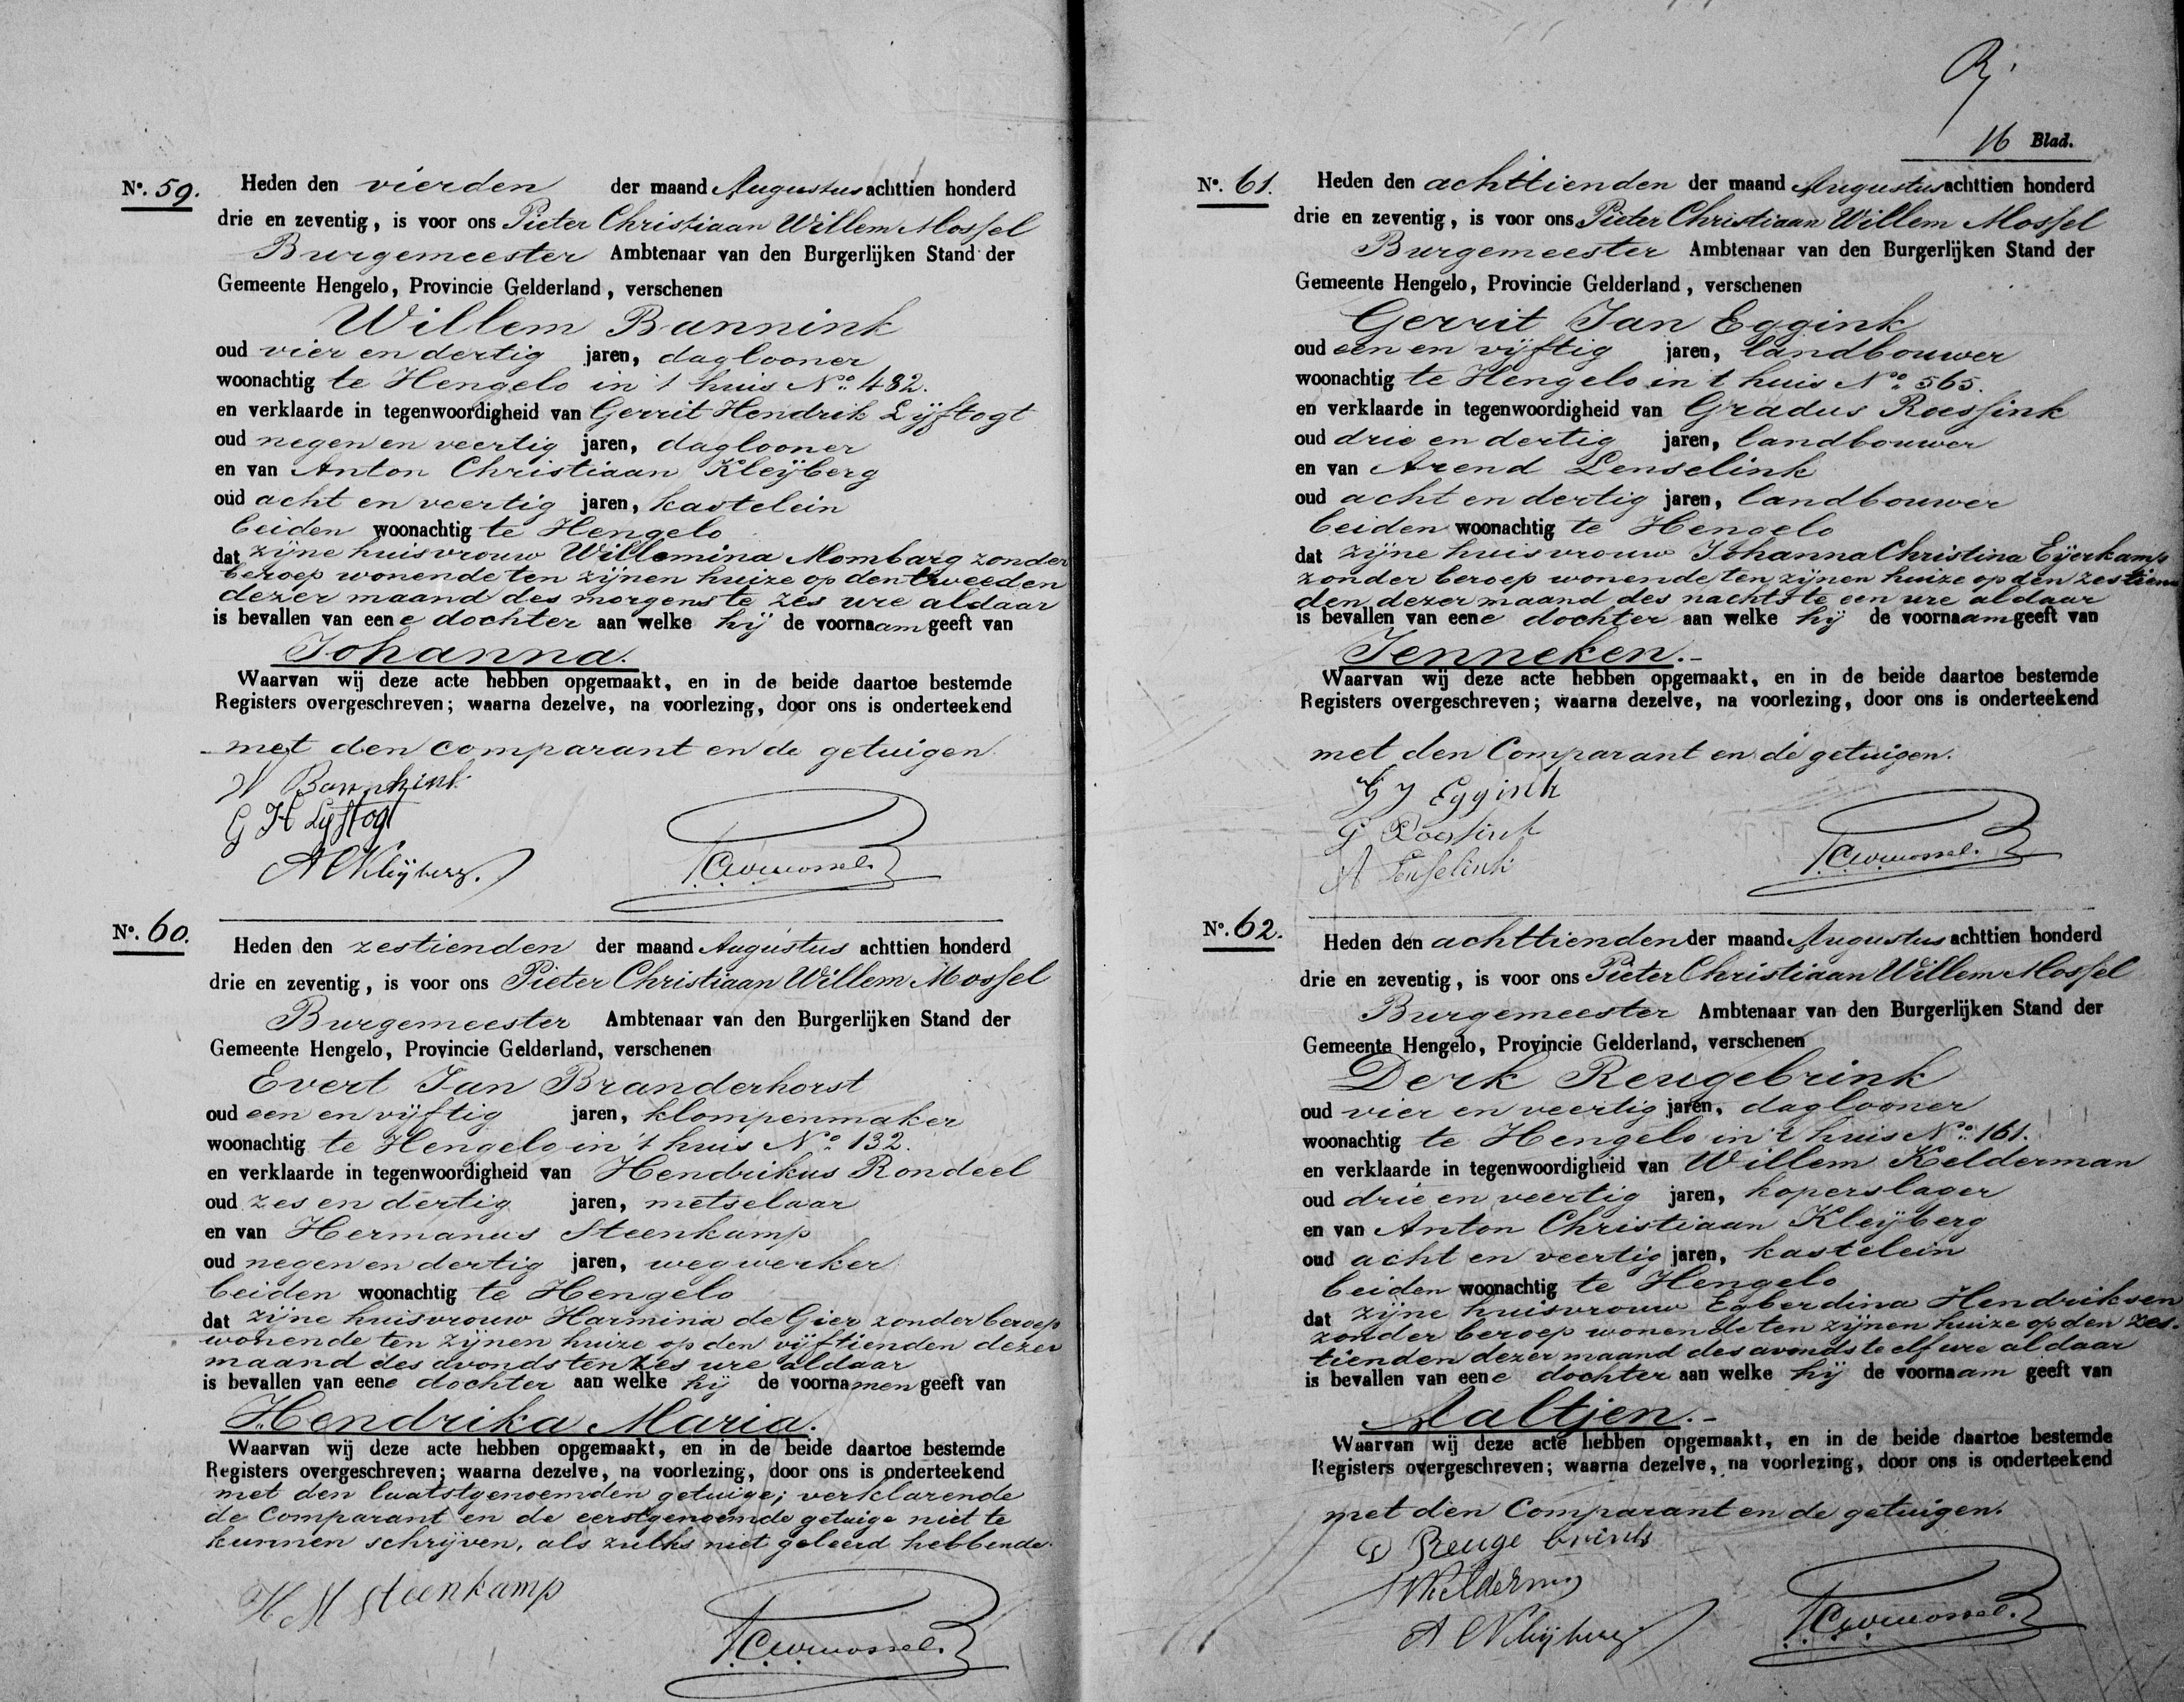 Nº. 59.
Heden den vierden der maand Augustus achttien honderd
drie en zeventig, is voor ons Pieter Christiaan Willem Mossel
Burgemeester Ambtenaar van den Burgerlijken Stand der
Gemeente Hengelo, Provincie Gelderland, verschenen
Willem Bannink
oud vier en dertig jaren, daglooner
woonachtig te Hengelo in 't huis No. 482.
en verklaarde in tegenwoordigheid van Gerrit Hendrik Lijftogt
oud negen en veertig jaren, daglooner
en van Anton Christiaan Kleijberg
oud acht en veertig jaren, kastelein
beiden woonachtig te Hengelo
dat zijne huisvrouw Willemina Mombarg zonder
beroep wonende ten zijnen huize op den tweeden
dezer maand des morgens te zes ure aldaar
is bevallen van eene dochter aan welke hij de voornaam geeft van
Johanna.
Waarvan wij deze acte hebben opgemaakt, en in de beide daartoe bestemde
Registers overgeschreven; waarna dezelve, na voorlezing, door ons is onderteekend
met den comparant en de getuigen.
W Bannink
G H Lijftogt
A C Kleijberg.
P.C.W. Mossel.
Nº. 60.
Heden den zestienden der maand Augustus achttien honderd
drie en zeventig, is voor ons Pieter Christiaan Willem Mossel
Burgemeester Ambtenaar van den Burgerlijken Stand der
Gemeente Hengelo, Provincie Gelderland, verschenen
Evert Jan Branderhorst
oud een en vijftig jaren, klompenmaker
woonachtig te Hengelo in 't huis No. 132.
en verklaarde in tegenwoordigheid van Hendrikus Rondeel
oud zes en dertig jaren, metselaar
en van Hermanus Steenkamp
oud negen en dertig jaren, wegwerker
beiden woonachtig te Hengelo
dat zijne huisvrouw Harmina de Gier zonder beroep
wonende ten zijnen huize op den vijftienden dezer
maand des avonds ten zes ure aldaar
is bevallen van eene dochter aan welke hij de voornamen geeft van
Hendrika Maria.
Waarvan wij deze acte hebben opgemaakt, en in de beide daartoe bestemde
Registers overgeschreven; waarna dezelve, na voorlezing, door ons is onderteekend
met den laatstgenoemden getuige; verklarende
de Comparant en de eerstgenoemde getuige niet te
kunnen schrijven, als zulks niet geleerd hebbende.
H M Steenkamp
P.C.W. Mossel.
16 Blad.
Nº. 61.
Heden den achttienden der maand Augustus achttien honderd
drie en zeventig, is voor ons Pieter Christiaan Willem Mossel
Burgemeester Ambtenaar van den Burgerlijken Stand der
Gemeente Hengelo, Provincie Gelderland, verschenen
Gerrit Jan Eggink
oud een en vijftig jaren, landbouwer
woonachtig te Hengelo in 't huis No. 565.
en verklaarde in tegenwoordigheid van Gradus Roessink
oud drie en dertig jaren, landbouwer
en van Arend Lenselink
oud acht en dertig jaren, landbouwer
beiden woonachtig te Hengelo
dat zijne huisvrouw Johanna Christina Eijerkamp
zonder beroep wonende ten zijnen huize op den zestien
den dezer maand des nachts te een ure aldaar
is bevallen van eene dochter aan welke hij de voornaam geeft van
Jenneken.-
Waarvan wij deze acte hebben opgemaakt, en in de beide daartoe bestemde
Registers overgeschreven; waarna dezelve, na voorlezing, door ons is onderteekend
met den Comparant en de getuigen.
G J Eggink
G Roessink
A Lenselink
P.C.W. Mossel.
Nº. 62.
Heden den achttienden der maand Augustus achttien honderd
drie en zeventig, is voor ons Pieter Christiaan Willem Mossel
Burgemeester Ambtenaar van den Burgerlijken Stand der
Gemeente Hengelo, Provincie Gelderland, verschenen
Derk Reugebrink
oud vier en veertig jaren, daglooner
woonachtig te Hengelo in 't huis No. 161.
en verklaarde in tegenwoordigheid van Willem Kelderman
oud drie en veertig jaren, koperslager
en van Anton Christiaan Kleijberg
oud acht en veertig jaren, kastelein
beiden woonachtig te Hengelo
dat zijne huisvrouw Egberdina Hendriksen
zonder beroep wonende ten zijnen huize op den zes-
tienden dezer maand des avonds te elf ure aldaar
is bevallen van eene dochter aan welke hij de voornaam geeft van
Aaltjen.-
Waarvan wij deze acte hebben opgemaakt, en in de beide daartoe bestemde
Registers overgeschreven; waarna dezelve, na voorlezing, door ons is onderteekend
met den Comparant en de getuigen.
D Reugebrink
W Kelderman
A C Kleijberg
P.C.W. Mossel.